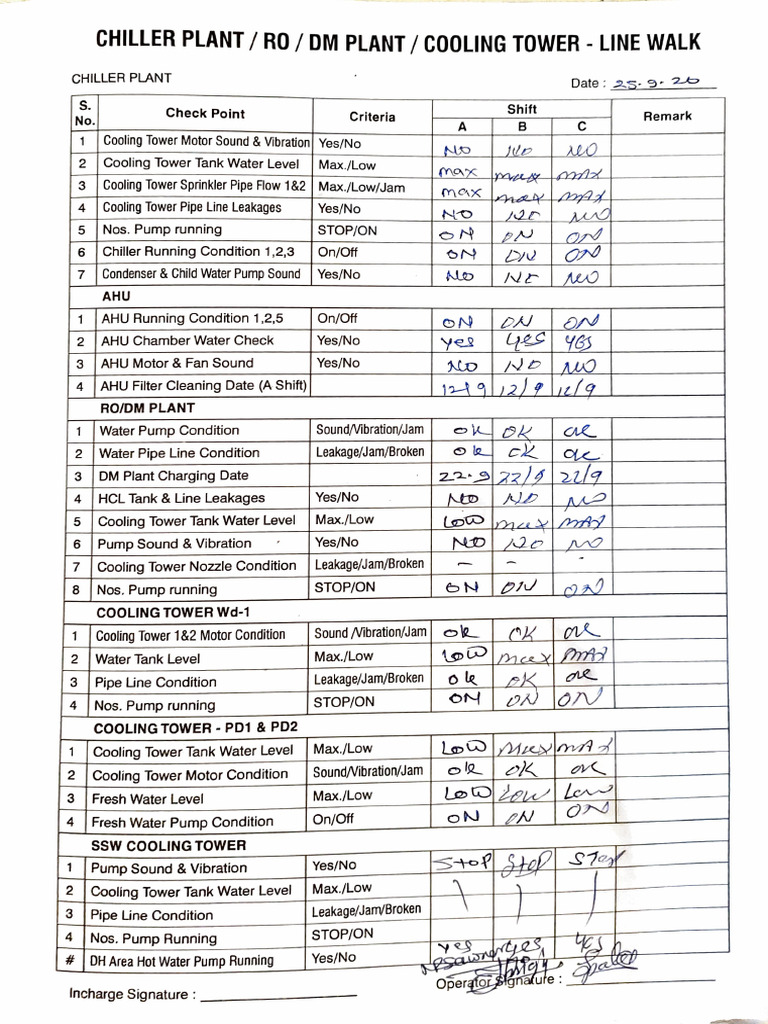 CHILLER PLANT / RO / DM PLANT / COOLING TOWER - LINE WALK
CHILLER PLANT Date : 25.9.20
S. No. Check Point Criteria Shift Remark
A B C
1 Cooling Tower Motor Sound & Vibration Yes/No NO NO NO
2 Cooling Tower Tank Water Level Max./Low max max MAX
3 Cooling Tower Sprinkler Pipe Flow 1&2 Max./Low/Jam max max MAX
4 Cooling Tower Pipe Line Leakages Yes/No NO NO NO
5 Nos. Pump running STOP/ON ON ON ON
6 Chiller Running Condition 1,2,3 On/Off ON ON ON
7 Condenser & Child Water Pump Sound Yes/No No NO NO
AHU
1 AHU Running Condition 1,2,5 On/Off ON ON ON
2 AHU Chamber Water Check Yes/No yes yes yes
3 AHU Motor & Fan Sound Yes/No NO NO NO
4 AHU Filter Cleaning Date (A Shift) 12/9 12/9 12/9
RO/DM PLANT
1 Water Pump Condition Sound/Vibration/Jam ok OK ok
2 Water Pipe Line Condition Leakage/Jam/Broken ok OK ok
3 DM Plant Charging Date 22.9 22/9 22/9
4 HCL Tank & Line Leakages Yes/No NO NO NO
5 Cooling Tower Tank Water Level Max./Low LOW max MAX
6 Pump Sound & Vibration Yes/No NO NO NO
7 Cooling Tower Nozzle Condition Leakage/Jam/Broken - - -
8 Nos. Pump running STOP/ON ON ON ON
COOLING TOWER Wd-1
1 Cooling Tower 1&2 Motor Condition Sound /Vibration/Jam ok OK ok
2 Water Tank Level Max./Low LOW max MAX
3 Pipe Line Condition Leakage/Jam/Broken ok OK ok
4 Nos. Pump running STOP/ON ON ON ON
COOLING TOWER - PD1 & PD2
1 Cooling Tower Tank Water Level Max./Low LOW max MAX
2 Cooling Tower Motor Condition Sound/Vibration/Jam ok OK ok
3 Fresh Water Level Max./Low LOW LOW Low
4 Fresh Water Pump Condition On/Off ON ON ON
SSW COOLING TOWER
1 Pump Sound & Vibration Yes/No STOP STOP STOP
2 Cooling Tower Tank Water Level Max./Low
3 Pipe Line Condition Leakage/Jam/Broken
4 Nos. Pump Running STOP/ON
# DH Area Hot Water Pump Running Yes/No yes yes yes
Incharge Signature : Operator Signature :